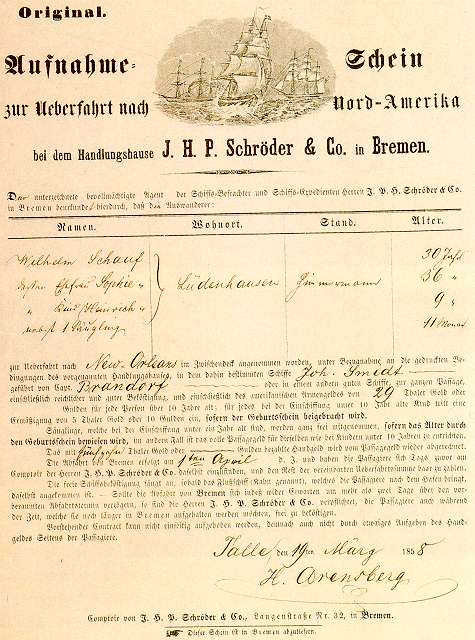 Original.
Aufnahme-Schein
zur Ueberfahrt nach Nord-Amerika
bei dem Handlungshause J. H. P. Schröder & Co. in Bremen.
Der unterzeichnete bevollmächtigte Agent der Schiffs-Befrachter und Schiffs-Expedienten Herren J. P. H. Schröder & Co.
in Bremen beurkundet hierdurch, daß die Auswanderer:
Namen. Wohnort. Stand. Alter.
Wilhelm Schauf 30 Jahr
dessen Ehefrau Sophie " Lüdenhausen Zimmermann 36 "
" Kind Heinrich " 9 "
nebst 1 Säugling 11 Monat
zur Ueberfahrt nach New-Orleans im Zwischendeck angenommen worden, unter Bezugnahme an die gedruckten Be-
dingungen des vorgenannten Handlungshauses, in dem dahin bestimmten Schiffe Joh. Smidt
geführt von Capt. Brandorf oder in einem andern guten Schiffe, zur ganzen Passage,
einschließlich reichlicher und guter Beköstigung, und einschließlich des amerikanischen Armengeldes von 29 Thaler Gold oder
Gulden für jede Person über 10 Jahre alt: für jedes bei der Einschiffung unter 10 Jahre alte Kind tritt eine
Ermäßigung von 5 Thaler Gold oder 10 Gulden ein, sofern der Geburtschein beigebracht wird.
Säuglinge, welche bei der Einschiffung unter ein Jahr alt sind, werden ganz frei mitgenommen, sofern das Alter durch
den Geburtschein bewiesen wird, im andern Fall ist das volle Passagegeld für dieselben wie bei Kindern unter 10 Jahren zu entrichten.
Das mit fünfzehn Thaler Gold oder Gulden bezahlte Handgeld wird vom Passagegeld wieder abgerechnet.
Die Abfahrt von Bremen erfolgt am 1ten April d. J. und haben die Passagiere sich Tags zuvor am
Comptoir der Herren J. H. P. Schröder & Co. daselbst einzufinden, und den Rest der vereinbarten Ueberfahrtssumme baar zu zahlen.
Die freie Schiffsbeköstigung fängt an, sobald das Flußschiff (Kahn genannt), welches die Passagiere nach dem Hafen bringt,
daselbst angekommen ist. — Sollte die Abfahrt von Bremen sich indeß wider Erwarten um mehr als zwei Tage über den vor-
beraumten Abfahrtstermin verzögern, so sind die Herren J. H. P. Schröder & Co. verpflichtet, die Passagiere auch während
der Zeit, welche sie noch länger in Bremen aufgehalten werden möchten, frei zu beköstigen.
Vorstehender Contract kann nicht einseitig aufgehoben werden, dennach auch nicht durch etwaiges Aufgeben des Hand-
geldes Seitens der Passagiere.
Talle, den 19ten März 1858
H. Arensberg
Comptoir von J. H. P. Schröder & Co., Langenstraße Nr. 32, in Bremen.
Dieser Schein ist in Bremen abzuliefern.